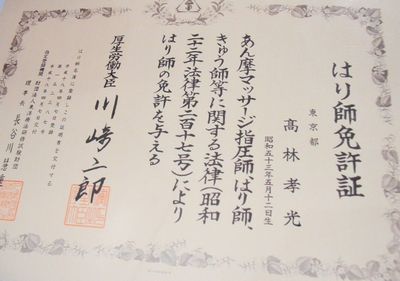 はり師免許証
東京都
髙林孝光
昭和五十三年五月十二日生
あん摩マッサージ指圧師、はり師、
きゅう師等に関する法律(昭和
二十二年法律第二百十七号)により
はり師の免許を与える
厚生労働大臣 川崎二郎
はり師名簿に登録しこの証明書を交付する
理事長 長谷川